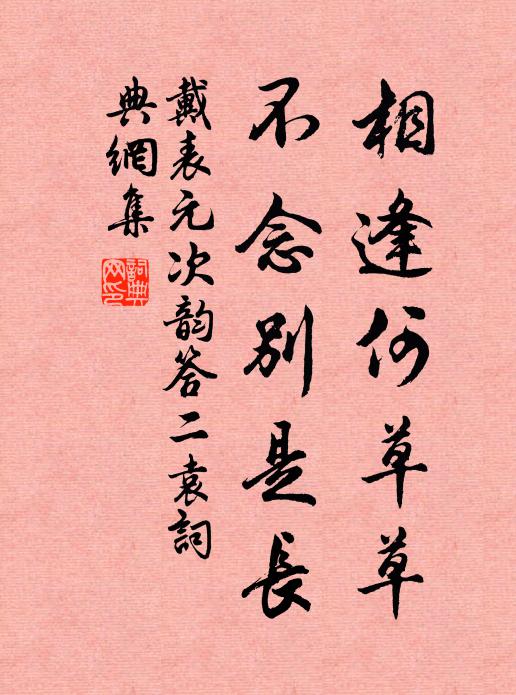 相逢何草草
不念別是長
戴表元次韵答二袁詞
典網集
詞典
网印